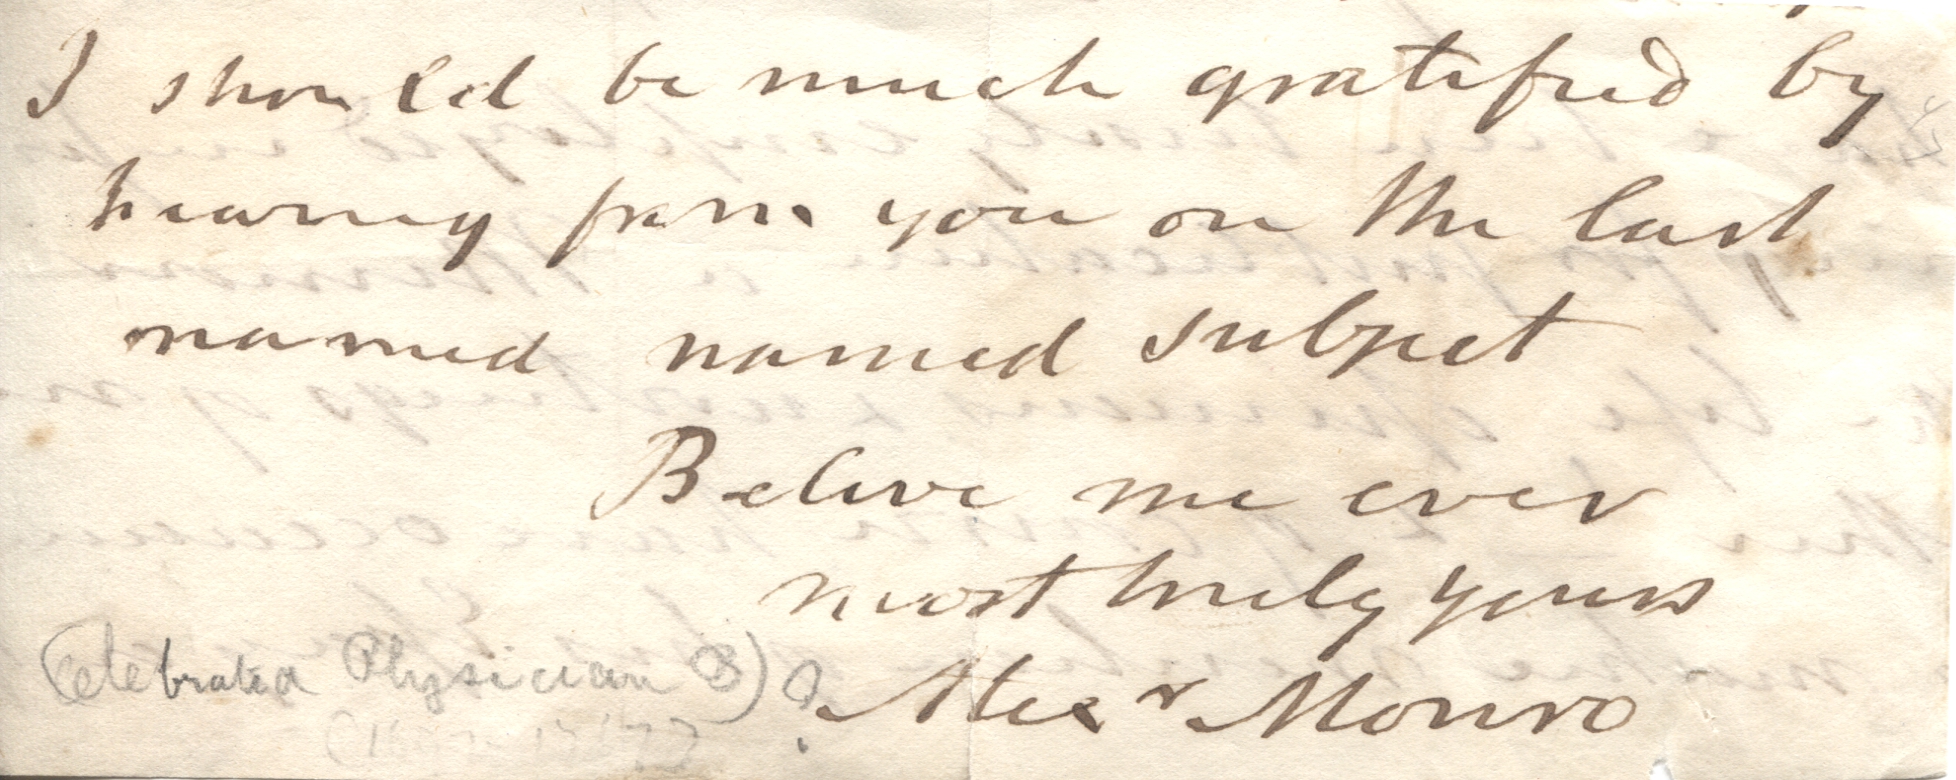 I should be much gratified by
hearing from you on the last
named named subject
Believe me ever
most truly yours
Alexr Monro
(Celebrated Physician B) ?